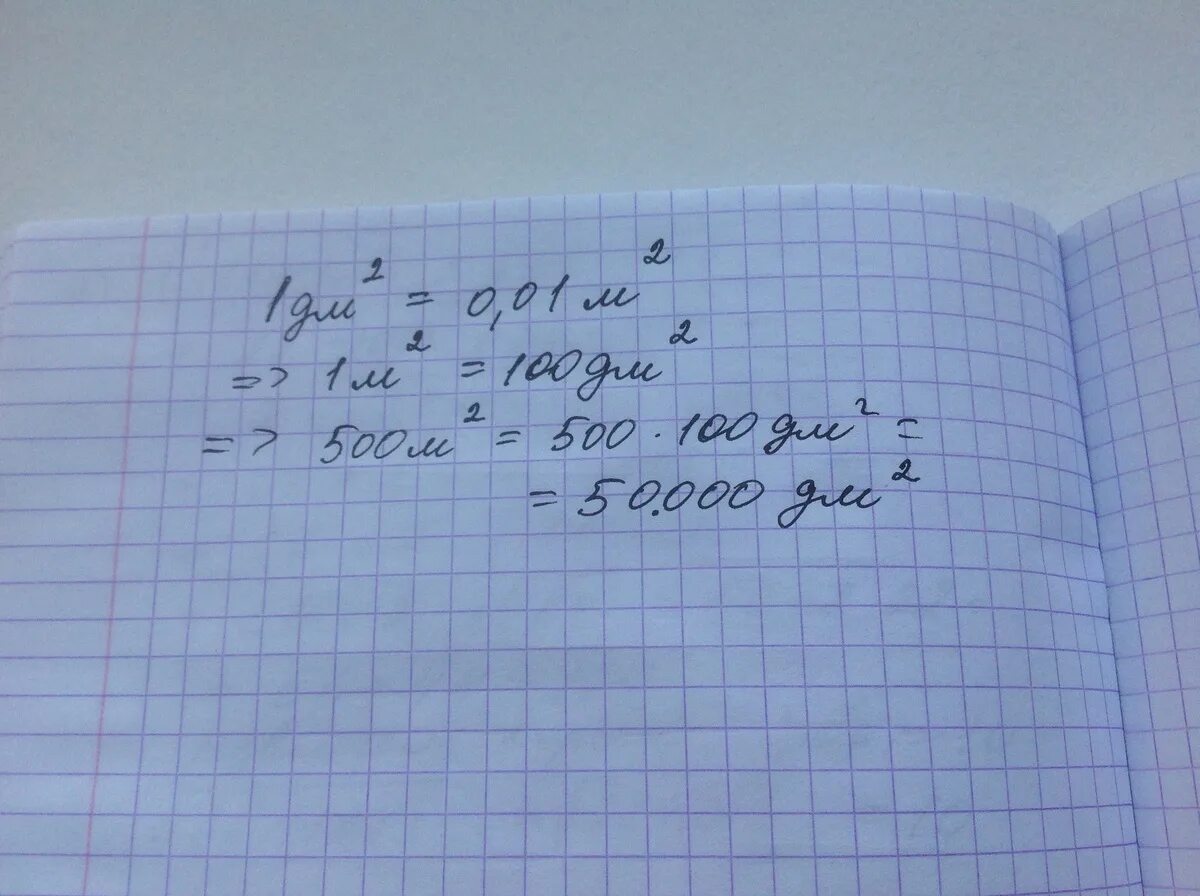 1дм² = 0,01 м²
=> 1м² = 100дм²
=> 500м² = 500 · 100 дм² =
= 50.000 дм²